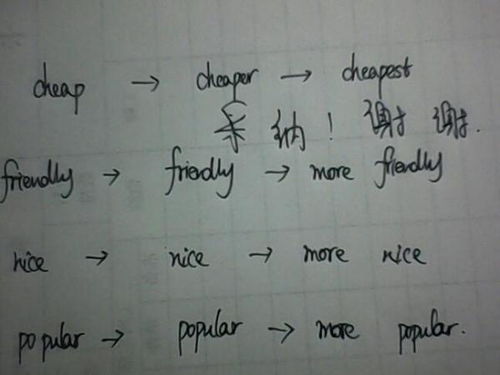 cheap → cheaper → cheapest
采纳! 谢谢.
friendly → friendly → more friendly
nice → nice → more nice
popular → popular → more popular.